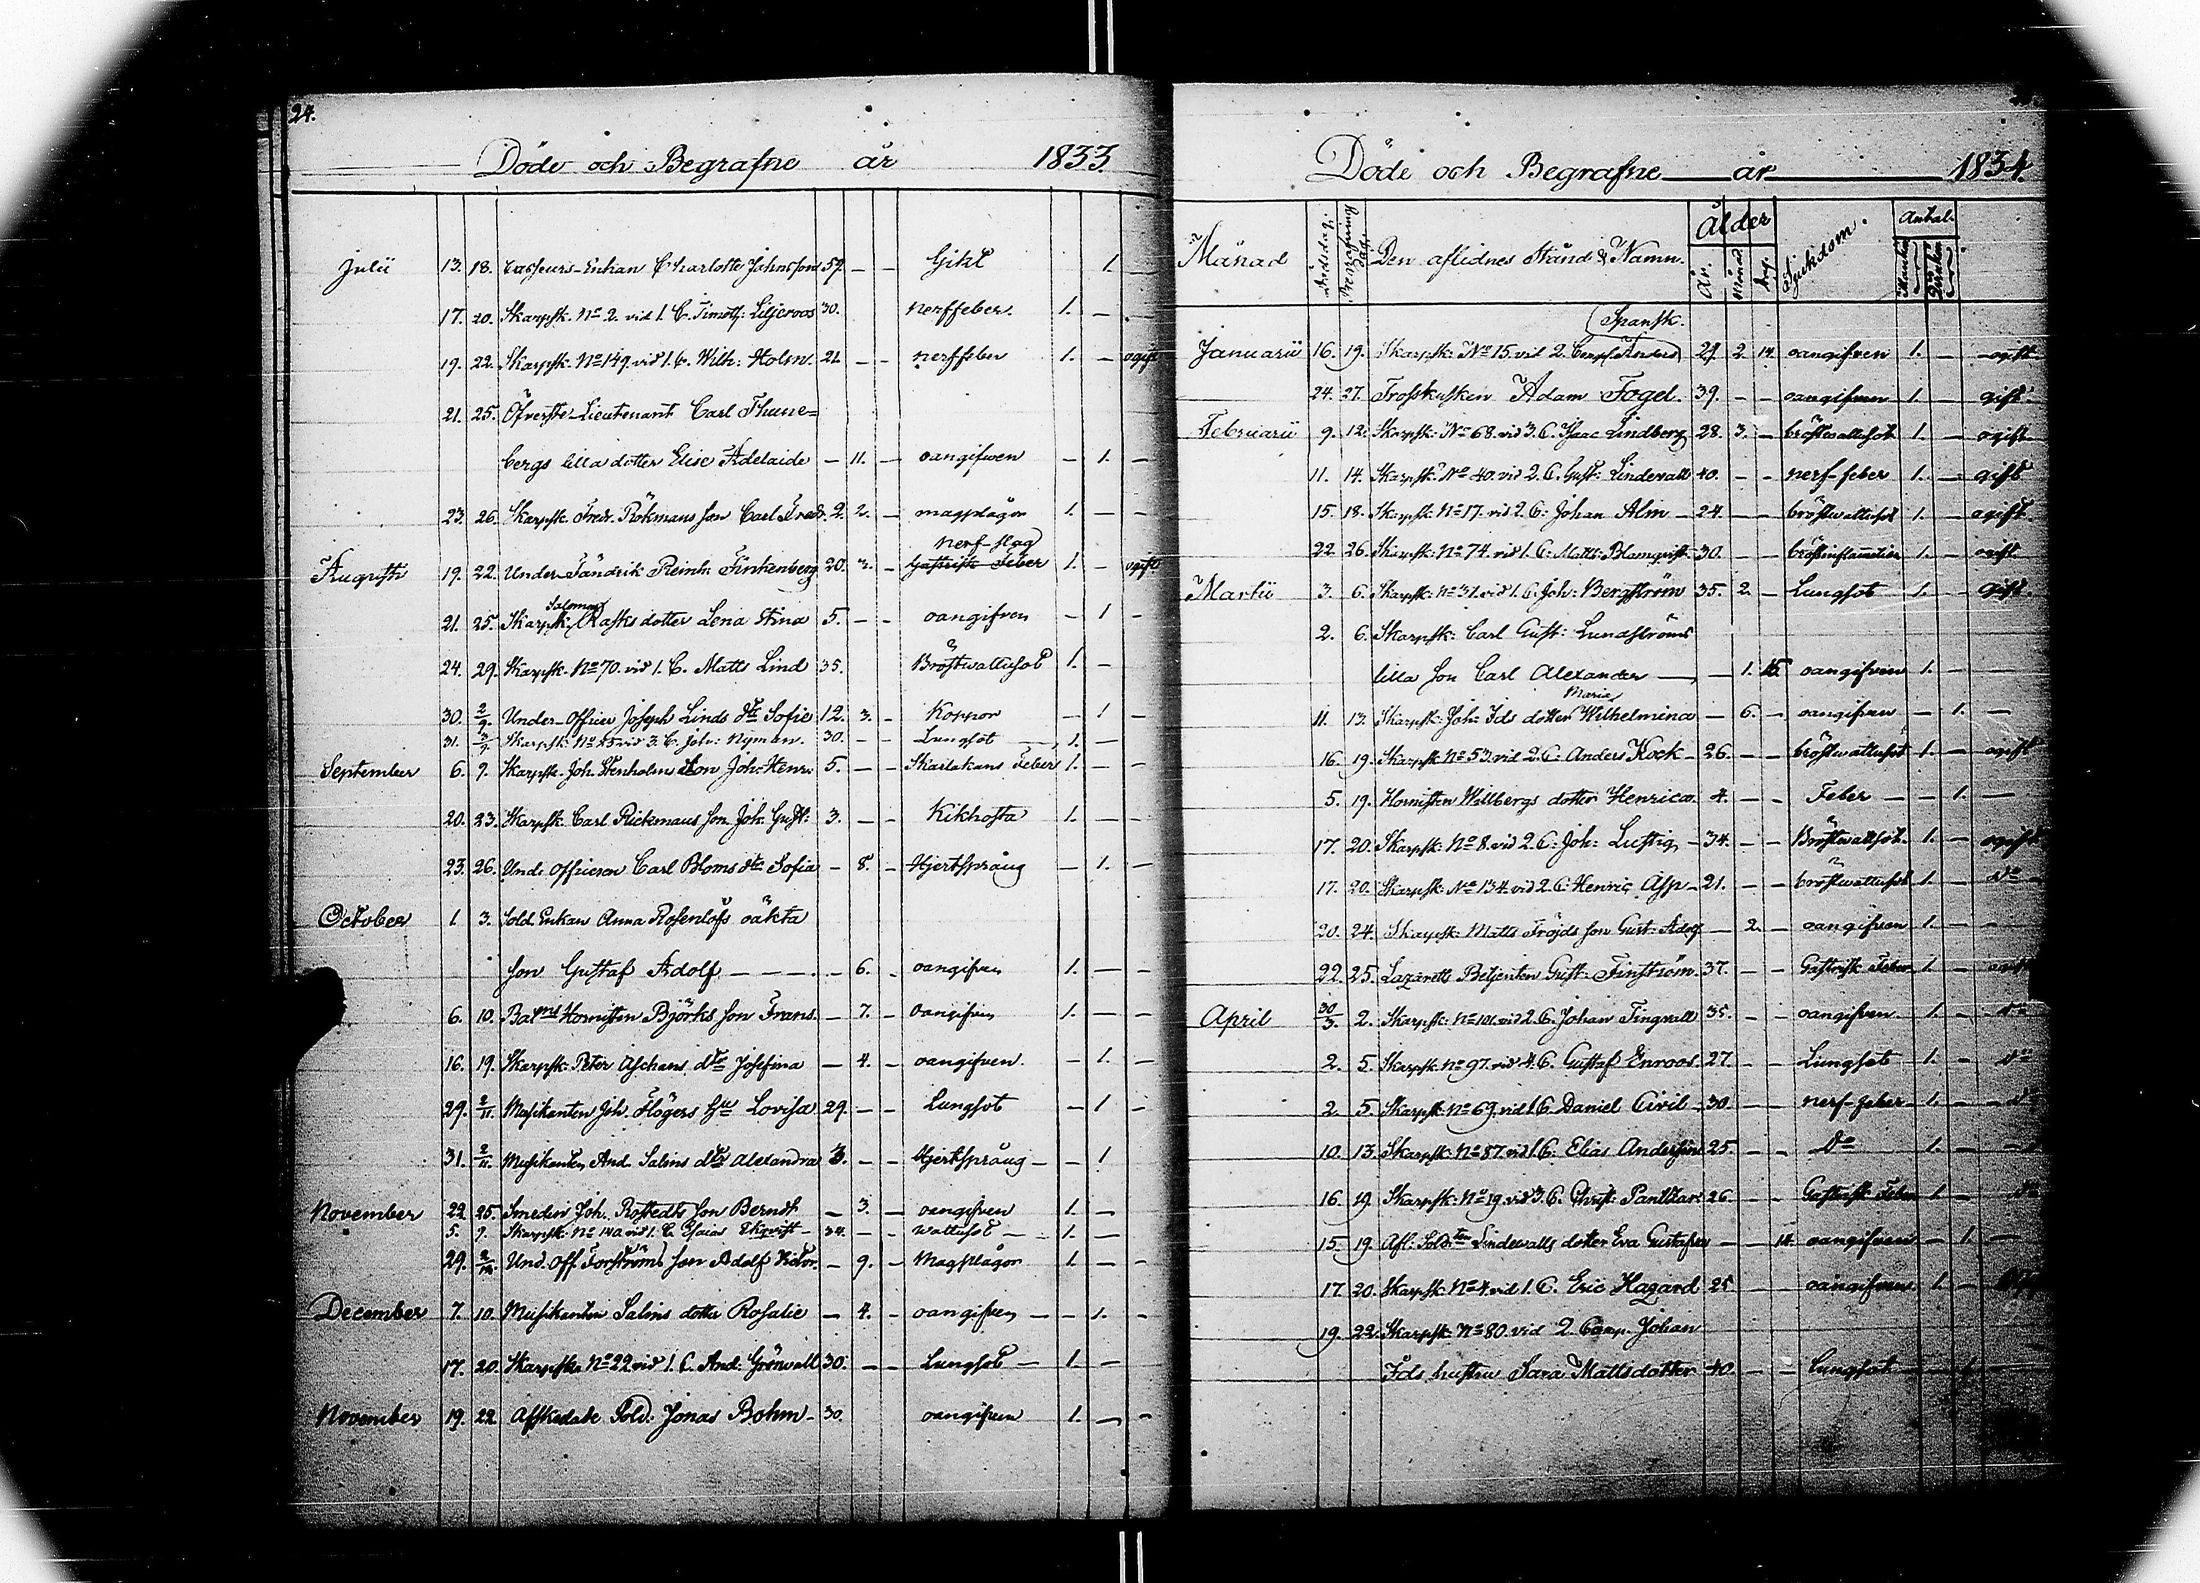 24.
Döde och Begrafne år 1833.
Julii 13. 18. Enkan Charlotte Johnsson 59. — — Gikt 1. —
17. 20. Skarpsk. No 2. vid 1. C. Timoth: Liljeroos 30. nerffeber. 1. —
19. 22. Skarpsk. No 149. vid 1. C. Wilh: Holm. 21 — — nerffeber 1. — ogift
21. 25. Öfverste-Lieutenant Carl Thune=
bergs lilla dotter Elise Adelaide — 11. — oangifven — 1. —
23. 26. Skarpsk. Fredr. Rökmans son Carl Fredr. 2. 2. — magplågor 1. — —
nerf-slag
Augusti 19. 22. Under-Fändrik Reinh: Finkenberg 20. 3. — Gastrisk Feber 1. — ogift
Salomon
21. 25. Skarpsk. Rasks dotter Lena Stina 5. — — oangifven — 1 —
24. 29. Skarpsk. No 70. vid 1. C. Matts Lind 35. Bröstwattusot 1. —
30. 2/9. Under-Officer Joseph Linds dtr Sofie 12. 3. — Koppor — 1 —
31. 3/9. Skarpsk. No 25 vid 3. C. Joh: Nyman. 30. — — Lungsot — 1. —
September 6. 9. Skarpsk. Joh. Stenholms son Joh: Henr: 5. — — Skarlakans Feber 1. — —
20. 23. Skarpsk. Carl Rickmans son Joh. Gust: 3. — — Kikhosta 1. — —
23. 26. Und. Officeren Carl Bloms dtr Sofia — 8. — Hjertsprång — 1. —
October 1. 3. Sold. Enkan Anna Rosenlöfs oäkta
son Gustaf Adolf — — — — 6. — oangifven 1. — —
6. 10. Batns Hornisten Björks son Frans. — 7. — oangifven 1. — —
16. 19. Skarpsk. Peter Aschans dtr Josefina — 4. — oangifven. — 1. —
29. 2/11. Musikanten Joh. Högers hu Lovisa 29. — — Lungsot — 1 —
31. 2/11. Musikanten And. Salins dtr Alexandra 3. — — Hjertsprång — — 1
November 22 25. Smeden Joh. Rostedts son Berndt — 3. — oangifven 1. —
5. 7. Skarpsk. No 140 vid 1. C. Esaias Ekqvist — 34. — — wattusot — 1. —
29. 2/12. Und. Off Forströms son Adolf Victor. — 9. — Magplågor 1. — —
December 7. 10. Musikanten Salins dotter Rosalie — 4. — oangifven — — 1. —
17. 20. Skarpsk. No 22 vid 1. C. And: Grönvall 30. — — Lungsot — 1. —
November 19. 22 Afskedade Sold: Jonas Bohm — 30. oangifven 1. — —
Döde och Begrafne år 1834.
Månad Dödsdag. Begrafning dag. Den aflidnes Stånd & Namn. Ålder År. Månad dag. Sjukdom. Antal. Mankön Qvinkön
Spansk.
Januarii 16. 19. Skarpsk: No 15. vid 2. Comp: Anders 21 2. 14. oangifven 1. — ogift
24. 27. Trosskusken Adam Fogel. 39. — — oangifven 1. — gift
Februarii 9. 12. Skarpsk: No 68. vid 3. C. Isaac Lindberg 28. 3. — bröstwattusot 1. — ogift
11. 14. Skarpsk. No 40. vid 2. C. Gust: Lindevall 40. — — nerf-feber 1. — gift
15. 18. Skarpsk: No 17. vid 2. C: Johan Alm — 24. — — bröstwattusot 1. — ogift.
22 26. Skarpsk: No 74. vid 1. C: Matts: Blomqvist 30. — — bröstinflamation 1. — ogift
Martii 3. 6. Skarpsk: No 31. vid 1. C. Joh: Bergström 35. 2. — Lungsot 1. — gift.
2. 6. Skarpsk: Carl Gust: Lundströms
lilla son Carl Alexander — — 1. 15. oangifven 1. — —
Maria
11. 13. Skarpsk: Joh: Ids dotter Wilhelmina — 6. — oangifven — 1. —
16. 19. Skarpsk: No 53. vid 2. C: Anders Kock — 26. — — bröstwattusot 1. — ogift
5. 19. Hornisten Wellbergs dotter Henrica. 4. — — Feber — — 1. —
17. 20. Skarpsk: No 8. vid 2. C: Joh: Lustig — 34. — — Bröstwattsot. 1. — ogift
17. 20. Skarpsk: No 134. vid 2. C: Henric Asp — 21. — — bröstwattusot 1. — do —
20. 24. Skarpsk: Matts Fröjds son Gust: Adolf — 2. — oangifven 1. — —
22. 25. Lazaretts Betjenten Gust: Finström. 37. — — Gastrisk Feber 1. —
April 30/3. 2. Skarpsk: No 101. vid 2. C. Johan Tingvall 35. — — oangifven 1. — do
2. 5. Skarpsk: No 97. vid 4. C. Gustaf Enroos. 27. — — Lungsot 1. — do
2. 5. Skarpsk: No 69. vid 1. C. Daniel Civil — 30. — — nerf-feber — 1. — do
10. 13. Skarpsk: No 87. vid 1. C: Elias Andersson 25 — — do 1. —
16. 19. Skarpsk: No 19. vid 3. C. Christ: Panttzar 26 — — Gastrisk Feber 1 — do
15. 19. Afl: Soldten Lindevalls dotter Eva Gustafva — — 14. oangifven — 1. —
17. 20. Skarpsk: No 4. vid 1. C. Eric Hagard 25 — — oangifven 1. —
19. 22. Skarpsk: No 80. vid 2. Comp. Johan
Ids hustru Sara Mattsdotter 40. — — Lungsot — 1.